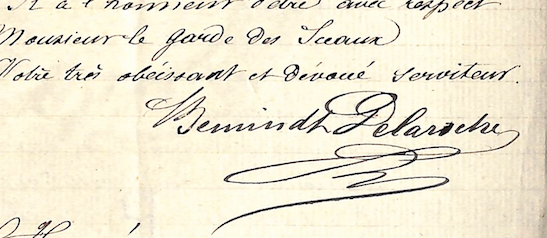 a l'honneur d'être avec respect
Monsieur le Garde des Sceaux
Votre très obéissant et dévoué serviteur.
Delaroche